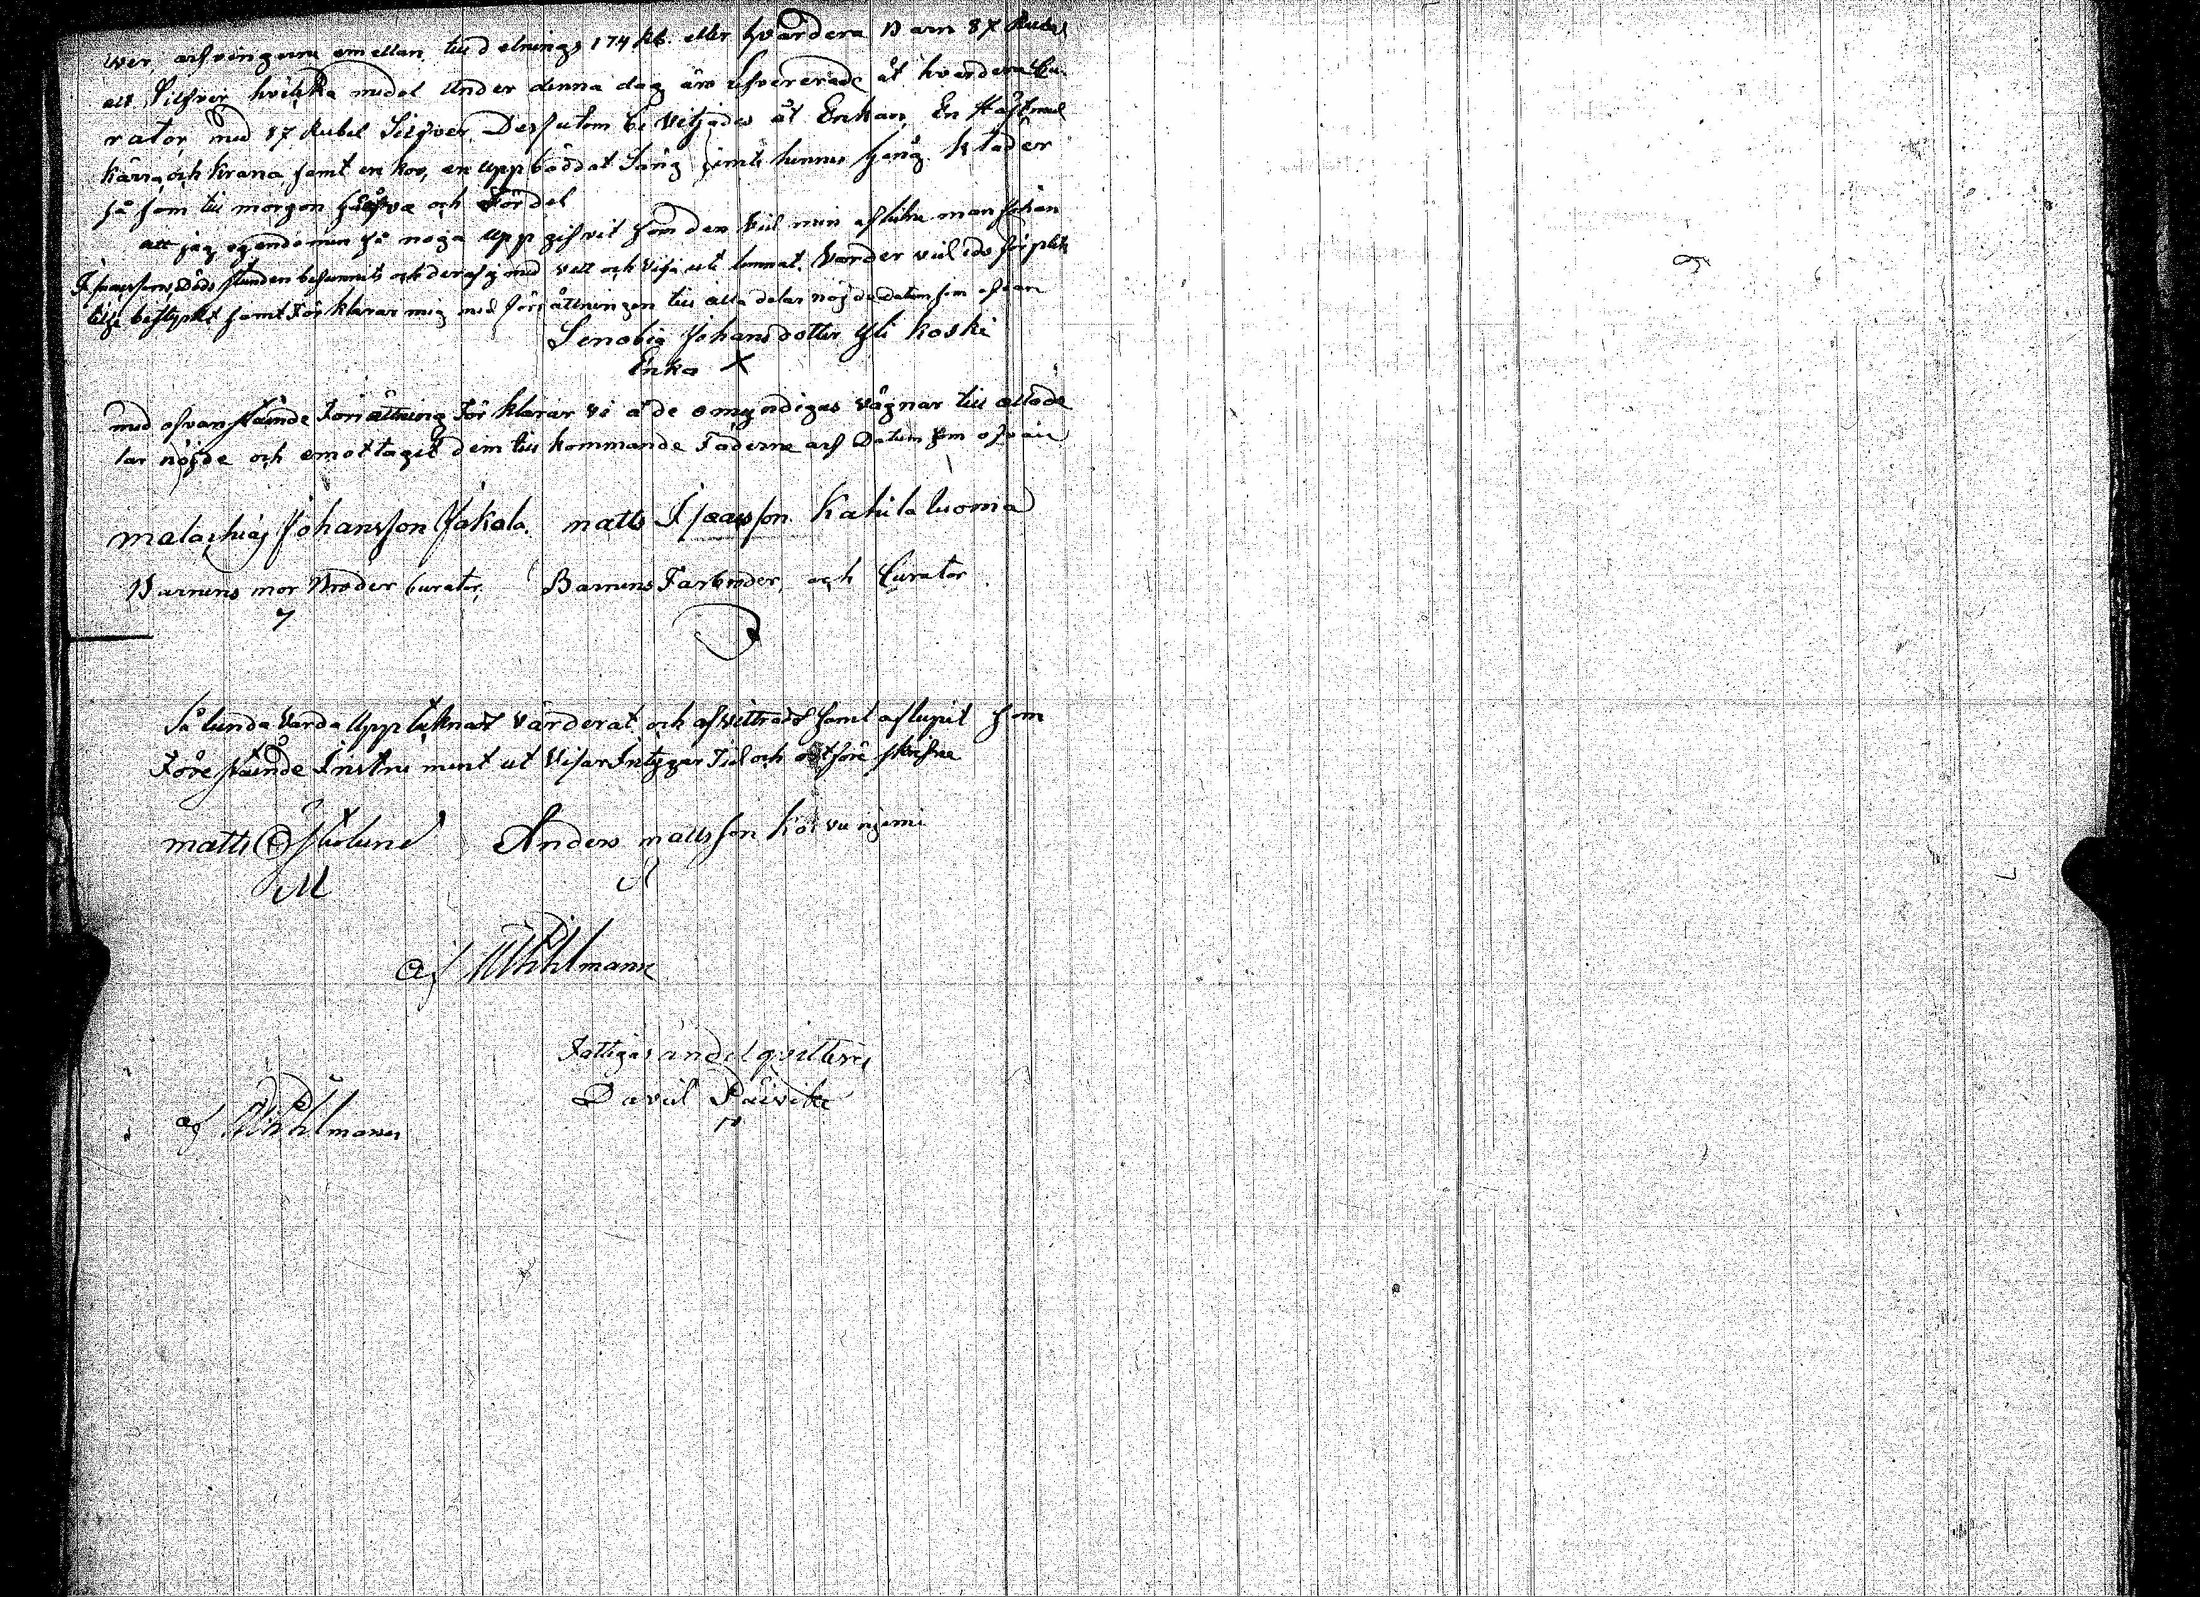 wer, arfvingarne emellan, till delnings 174 Rb. eller hvardera Barn 87 Rubel
allt Silfver, hvilka medel under denna dag äro lefvererade åt hvardera Cu-
rator, med 87 Rubel Silfver. Dessutom beviljades åt Enkan, En Häst med
kärra och krana samt en kov, en uppbäddat Säng samt hennes gång kläder
så som till morgon gåfva och Fördel
att jag egendomen så noga uppgifvit som den vid min aflidne man Johan
Isacssons Döds stunden befunnits och deraf ej med vett och vilja ute lemnat. Warder vid eds förplik
telse bestyrkt samt Förklarar mig med förrättningen till alla delar nöjde Datum som ofvan
Senobia Johansdotter Yli koski
Enka X
med ofvanstående Förrättning Förklarar vi å de omyndigas vägnar till alla de
lar nöjde och emottagit dem tillkommande Fäderne arf Datum som ofvan
malachias Johansson Jakola. matts Isaacsson Kahilaluoma
Barnens mor Broder Curator, Barnens Farbroder, och Curator
Så lunda varda Upptecknadt värderat och afvittradt samt aflupit som
Förestående Instrument utvisar Intygar Tid och ort före skrifne
matts Anders mattsson Koi vu niemi
M A
af
Fattigas andel qvitteras
David Päivike
af